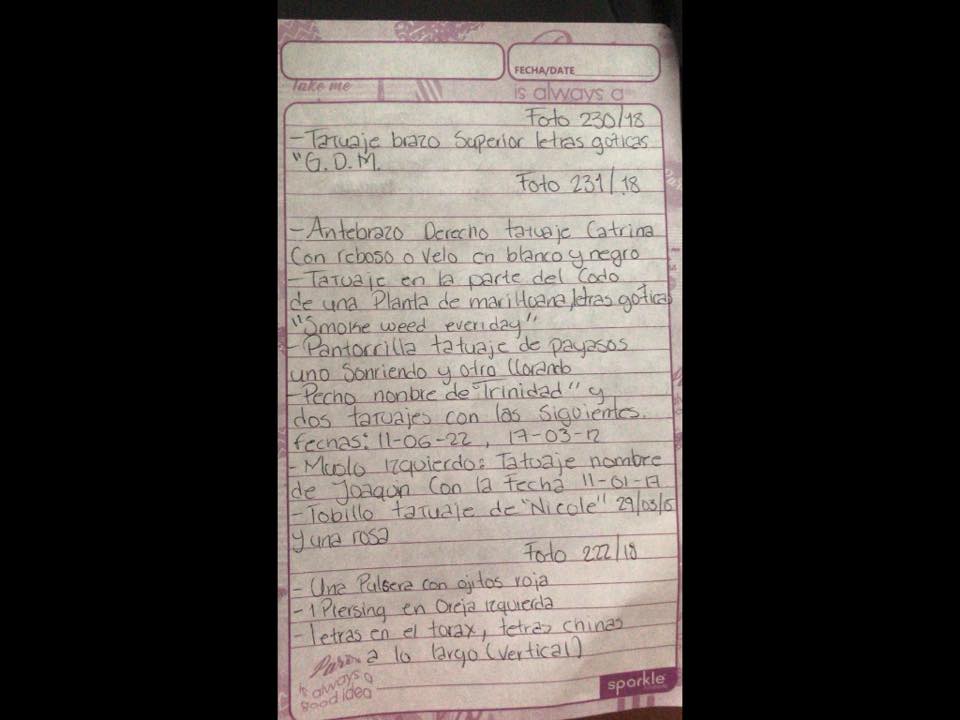 FECHA/DATE
Take me
is always a
Foto 230/18
-Tatuaje brazo Superior letras goticas
"G.D.M.
Foto 231/18
-Antebrazo Derecho tatuaje Catrina
Con reboso o velo en blanco y negro
-Tatuaje en la parte del Codo
de una Planta de mariHuana, letras goticas
"Smoke weed everiday"
-Pantorrilla tatuaje de payasos
uno Sonriendo y otro llorando
-Pecho nonbre de "Trinidad" y
dos tatuajes con las Siguientes.
fechas: 11-06-22, 17-03-12
-Muslo Izquierdo: Tatuaje nombre
de Joaquin Con la Fecha 11-01-17
-Tobillo tatuaje de "Nicole"
y una rosa
Foto 222/18
- Una Pulsera con ojitos roja
-1 Piersing en Oreja Izquierda
-letras en el torax, letras chinas
a lo largo (Vertical)
Paris
is always a
good idea
sparkle